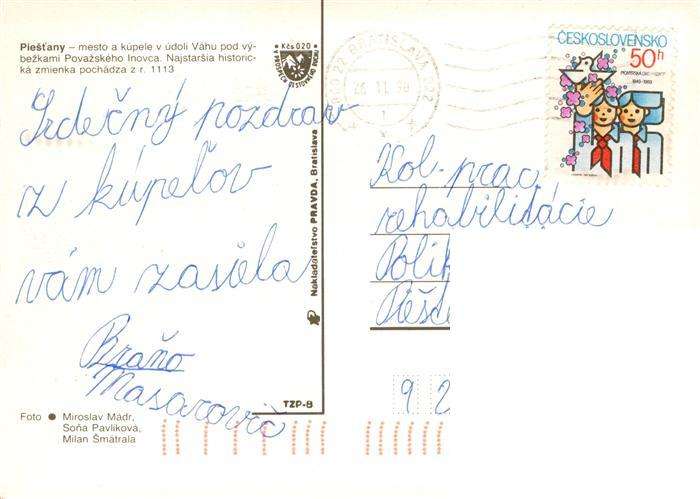 Piešťany – mesto a kúpele v údolí Váhu pod vý-
bežkami Považského Inovca. Najstaršia historic-
ká zmienka pochádza z r. 1113
Kčs 0,20
Srdečný pozdrav
z kúpeľov
vám zasiela
Braňo
Masarovič
Foto ● Miroslav Mádr,
Soňa Pavlíková,
Milan Šmatrala
Nakladateľstvo PRAVDA, Bratislava
TZP-8
BRATISLAVA
ČESKOSLOVENSKO
50 h
1949-1989
Kol. prac.
rehabilitácie
Polik
Piešť
9 2